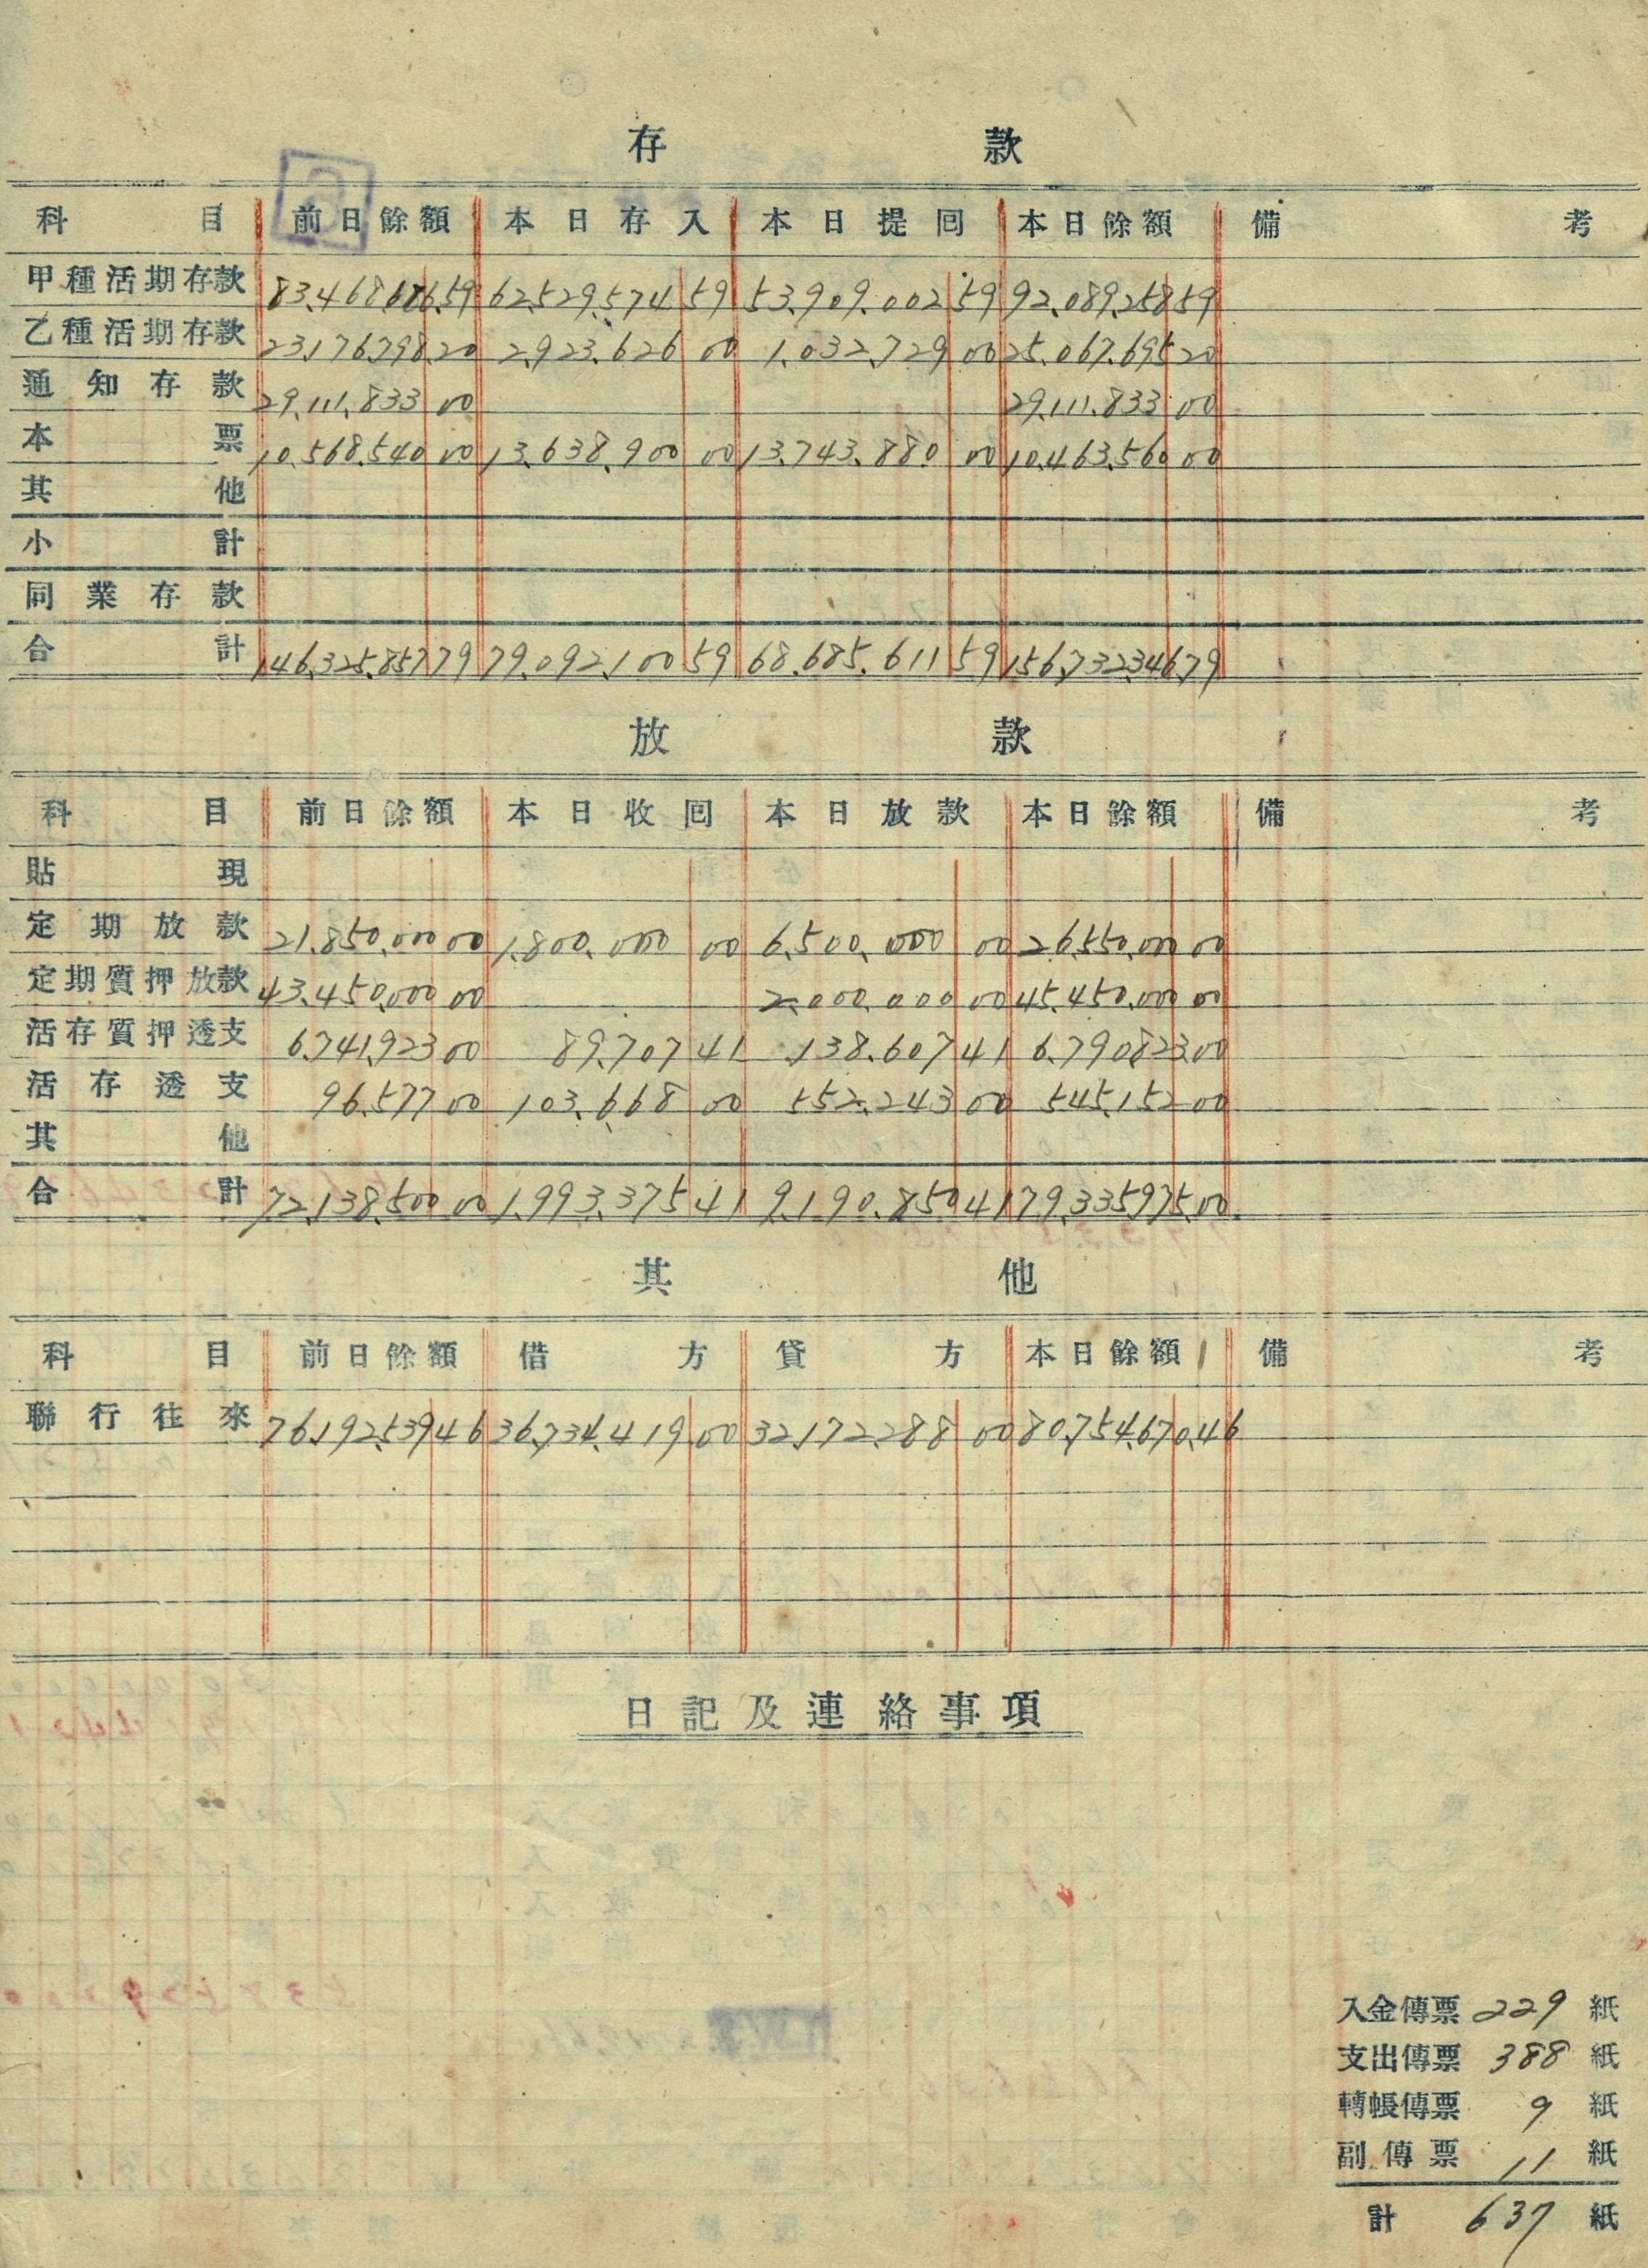 存款
科目 前日餘額 本日存入 本日提回 本日餘額 備考
甲種活期存款 83,468,686.59 62,529,574 59 53,909,002 59 92,089,258 59
乙種活期存款 23,176,798.20 2,923,626 00 1,032,729 00 25,067,695 20
通知存款 29,111,833 00 29,111,833 00
本票 10,568,540 00 13,638,900 00 13,743,880 00 10,463,560 00
其他
小計
同業存款
合計 146,325,857 79 79,092,100 59 68,685,611 59 156,732,346.79
放款
科目 前日餘額 本日收回 本日放款 本日餘額 備考
貼現
定期放款 21,850,000 00 1,800,000 00 6,500,000 00 26,550,000 00
定期質押放款 43,450,000 00 2,000,000 00 45,450,000 00
活存質押透支 6,741,923 00 89,707 41 138,607 41 6,790,823.00
活存透支 96,577 00 103,668 00 552,243 00 545,152 00
其他
合計 72,138,500 00 1,993,375 41 9,190,850 41 79,335,975.00
其他
科目 前日餘額 借方 貸方 本日餘額 備考
聯行往來 76,192,539 46 36,734,419 00 32,172,288 00 80,754,670.46
日記及連絡事項
入金傳票 229 紙
支出傳票 388 紙
轉帳傳票 9 紙
副傳票 11 紙
計 637 紙